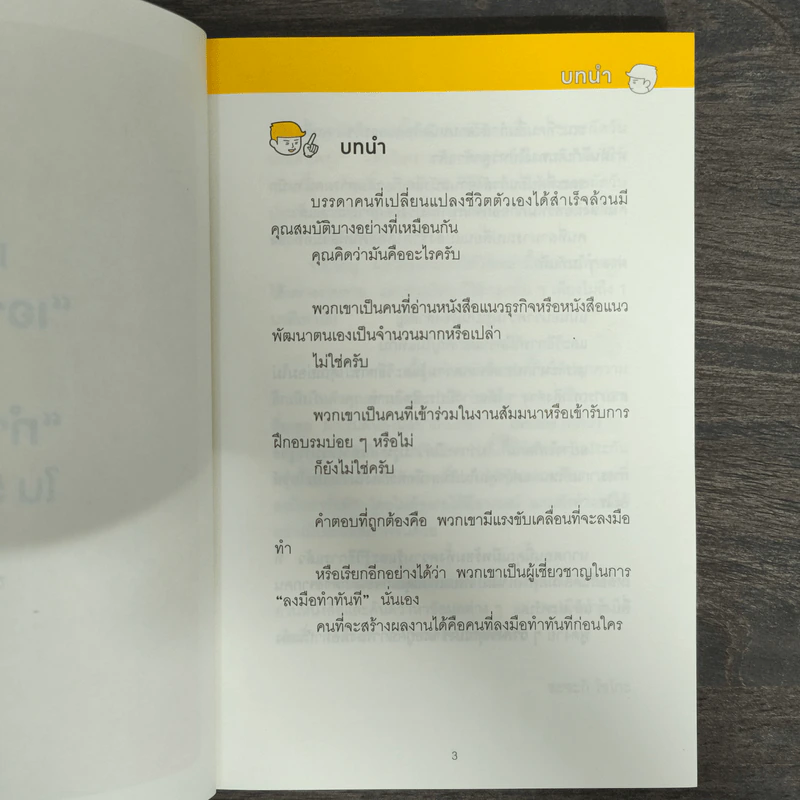 บทนำ
บทนำ
บรรดาคนที่เปลี่ยนแปลงชีวิตตัวเองได้สำเร็จล้วนมี
คุณสมบัติบางอย่างที่เหมือนกัน
คุณคิดว่ามันคืออะไรครับ
พวกเขาเป็นคนที่อ่านหนังสือแนวธุรกิจหรือหนังสือแนว
พัฒนาตนเองเป็นจำนวนมากหรือเปล่า
ไม่ใช่ครับ
พวกเขาเป็นคนที่เข้าร่วมในงานสัมมนาหรือเข้ารับการ
ฝึกอบรมบ่อย ๆ หรือไม่
ก็ยังไม่ใช่ครับ
คำตอบที่ถูกต้องคือ พวกเขามีแรงขับเคลื่อนที่จะลงมือ
ทำ
หรือเรียกอีกอย่างได้ว่า พวกเขาเป็นผู้เชี่ยวชาญในการ
“ลงมือทำทันที” นั่นเอง
คนที่จะสร้างผลงานได้คือคนที่ลงมือทำทันทีก่อนใคร
3